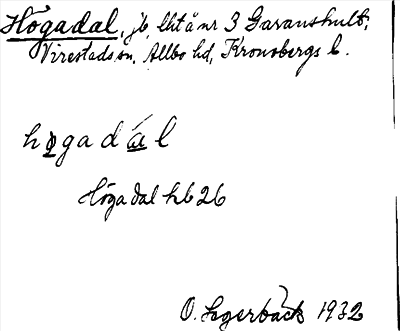 Högadal, jb, lht å nr 3 Garanshult,
Virestads sn, Allbo hd, Kronobergs l.
högadál
Högadal hb 26
O. Lagerbäck 1932